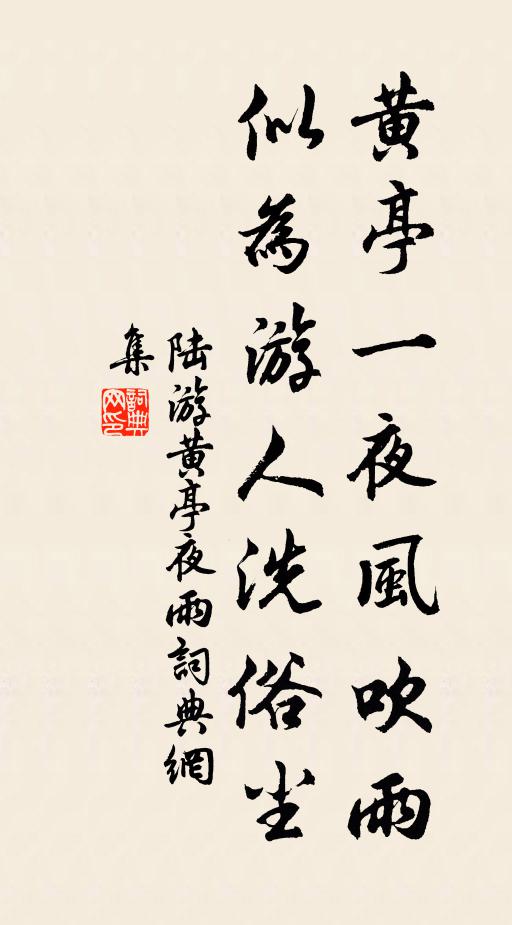 黃亭一夜風吹雨
似為游人洗俗尘
陆游黃亭夜雨詞典網
集
詞典
网印